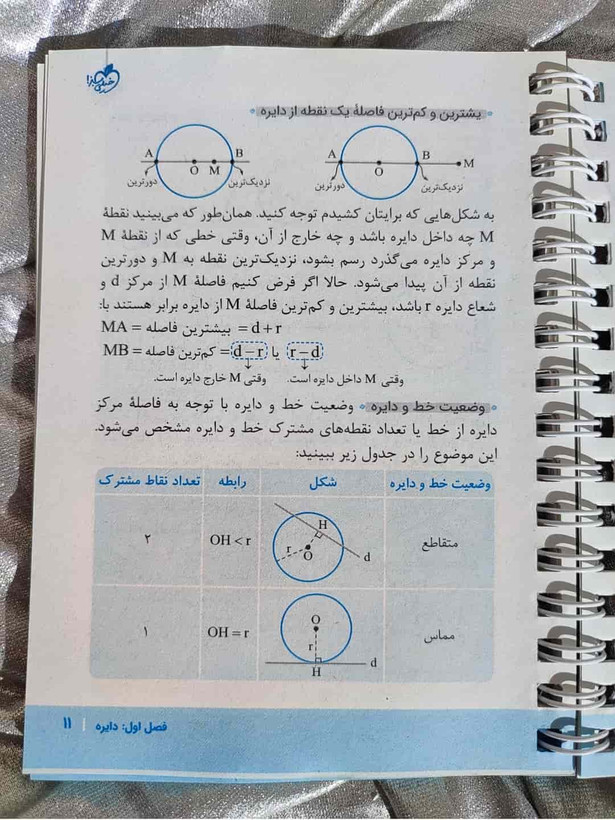 خیلی سبز
بیشترین و کم‌ترین فاصلهٔ یک نقطه از دایره
A O M B
دورترین نزدیک‌ترین
A O B M
دورترین نزدیک‌ترین
به شکل‌هایی که برایتان کشیدم توجه کنید. همان‌طور که می‌بینید نقطهٔ
M چه داخل دایره باشد و چه خارج از آن، وقتی خطی که از نقطهٔ M
و مرکز دایره می‌گذرد رسم بشود، نزدیک‌ترین نقطه به M و دورترین
نقطه از آن پیدا می‌شود. حالا اگر فرض کنیم فاصلهٔ M از مرکز d و
شعاع دایره r باشد، بیشترین و کم‌ترین فاصلهٔ M از دایره برابر هستند با:
MA = بیشترین فاصله = d + r
MB = کم‌ترین فاصله = d − r یا r − d
وقتی M داخل دایره است. وقتی M خارج دایره است.
وضعیت خط و دایره وضعیت خط و دایره با توجه به فاصلهٔ مرکز
دایره از خط یا تعداد نقطه‌های مشترک خط و دایره مشخص می‌شود.
این موضوع را در جدول زیر ببینید:
وضعیت خط و دایره شکل رابطه تعداد نقاط مشترک
متقاطع H r O d OH < r ۲
مماس O r H d OH = r ۱
فصل اول: دایره | ۱۱